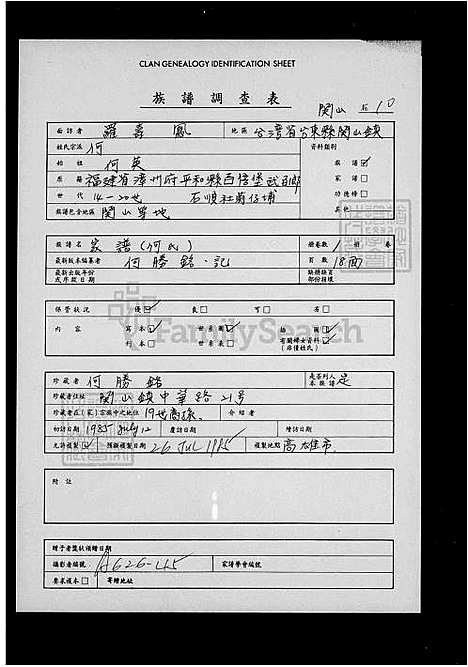 CLAN GENEALOGY IDENTIFICATION SHEET
族譜調查表
関山 10
面訪者 羅壽鳳 地區 台灣省台東縣関山鎮
姓氏宗派 何 資料類別
始祖 何英 族譜☑
原籍 福建省漳州府平和縣西信堡武 家譜□
世代 14-20世 石順社 埔 功德榜□
族譜包含地區 関山等地 其他
族譜名 家譜(何氏) 冊卷數 1 冊 卷
最新版本編纂者 何勝銘·記 頁數 18面
最新出版年份或序款日期 缺損頁部份接頁
保管狀況 優☑ 良□ 可□ 劣□
內容 寫本☑ 世系圖☑ 插圖□
刊本□ 世系表□ 有關婦女資料☑(非僅姓氏)
珍藏者 何勝銘 是否列入本族譜 是
珍藏者住址 関山鎮中華路21号
珍藏者在(家)宗族中之地位 19世裔孫 介紹者
初訪日期 1985 July 12 複訪日期 增訪日期
允許複製☑ 預擬複製日期 26 JUL 1985 複製地點 高雄市
附註
贈予者獎狀頒贈日期
攝影者編號 A626-LL5 家譜學會編號
要求複本□ 寄贈地址
FamilySearch